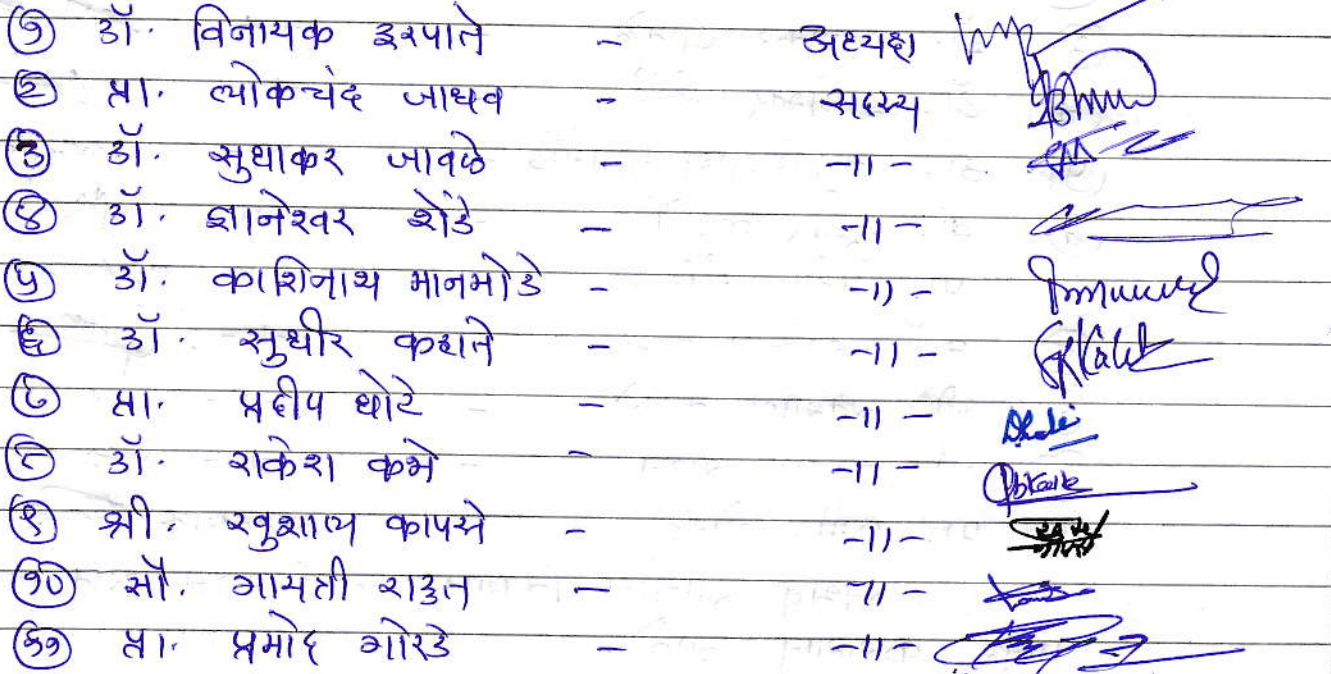 १ डॉ. विनायक इरपाते - अध्यक्ष
२ प्रा. लोकचंद जाधव - सदस्य
३ डॉ. सुधाकर जावळे - -॥-
४ डॉ. ज्ञानेश्वर शेंडे - -॥-
५ डॉ. काशिनाथ मानमोडे - -॥-
६ डॉ. सुधीर कहाते - -॥-
७ प्रा. प्रदीप धोटे - -॥- Dhote
८ डॉ. राकेश कभे - -॥-
९ श्री. खुशाल कापसे - -॥-
१० सौ. गायत्री राऊत - -॥-
११ प्रा. प्रमोद गोरडे - -॥-